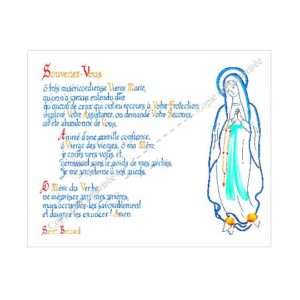 Souvenez-Vous
ô très miséricordieuse Vierge Marie,
qu'on n'a jamais entendu dire
qu'aucun de ceux qui ont eu recours à Votre Protection,
imploré Votre Assistance, ou demandé Votre Secours,
ait été abandonné de Vous.
Animé d'une pareille confiance,
ô Vierge des vierges, ô ma Mère,
je cours vers vous et
gémissant sous le poids de mes péchés,
je me prosterne à vos pieds.
Ô Mère du Verbe
ne méprisez pas mes prières,
mais accueillez-les favorablement
et daignez les exaucer ! Amen.
Saint Bernard